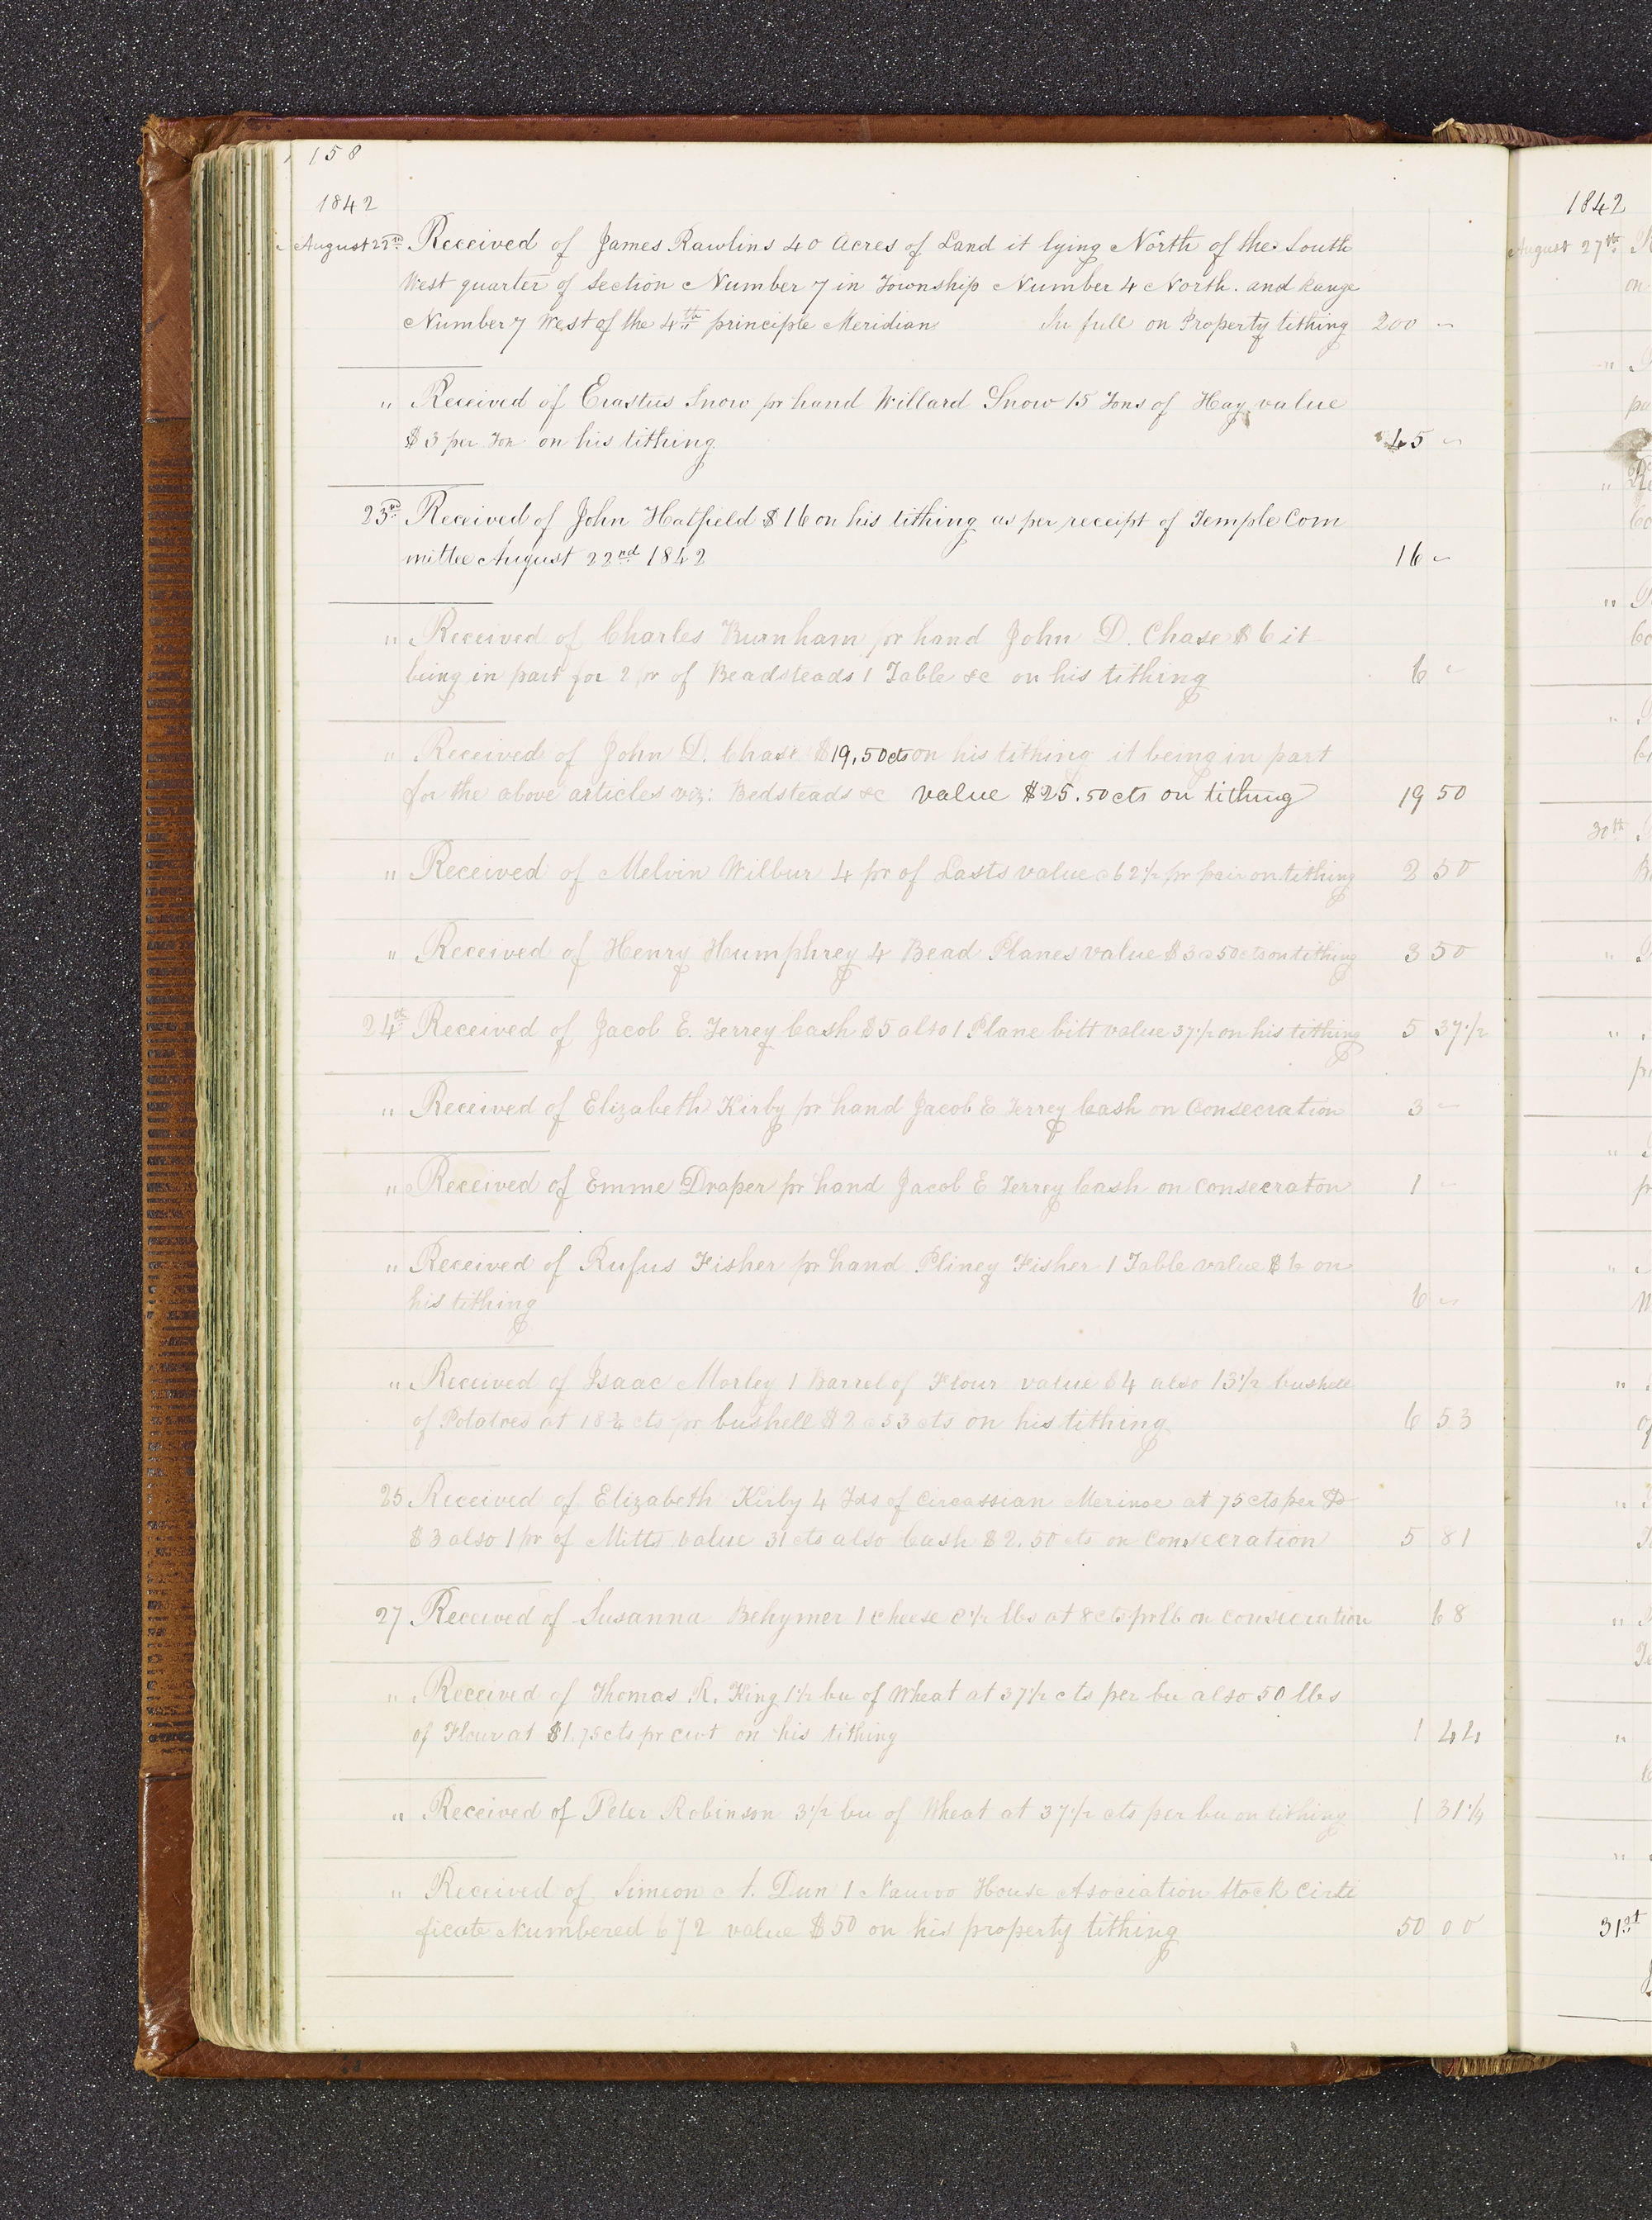 158
1842
August 22nd Received of James Rawlins 40 Acres of Land it lying North of the South
West quarter of Section Number 7 in Township Number 4 North. and Range
Number 7 West of the 4th principle Meridian In full on Property tithing 200 "
" Received of Erastus Snow pr hand Willard Snow 15 Tons of Hay value
$3 per Ton on his tithing 45 "
23rd Received of John Hatfield $16 on his tithing as per receipt of Temple Com
mittee August 22nd 1842 16 "
" Received of Charles Burnham pr hand John D. Chase $6 it
being in part for 2 pr of Beadsteads 1 Table &c on his tithing 6 "
" Received of John D. Chase $19,50cts on his tithing it being in part
for the above articles viz: Bedsteads &c value $25.50cts on tithing 19 50
" Received of Melvin Wilbur 4 pr of Lasts value 62½ pr pair on tithing 2 50
" Received of Henry Humphrey 4 Bead Planes value $3 50cts on tithing 3 50
24th Received of Jacob E. Terrey Cash $5 also 1 Plane bitt value 37½ on his tithing 5 37½
" Received of Elizabeth Kirby pr hand Jacob E Terrey Cash on Consecration 3 "
" Received of Emme Draper pr hand Jacob E Terrey Cash on Consecraton 1 "
" Received of Rufus Fisher pr hand Pliney Fisher 1 Table value $6 on
his tithing 6 "
" Received of Isaac Morley 1 Barrel of Flour value $4 also 13½ bushell
of Potatoes at 18¾ cts pr bushell $2 53 cts on his tithing 6 53
25 Received of Elizabeth Kirby 4 Yds of Circassian Merinoe at 75cts per Yd
$3 also 1 pr of Mitts value 31 cts also Cash $2.50 cts on Consecration 5 81
27 Received of Susanna Behymer 1 Cheese 8½ lbs at 8cts pr lb on Consecration 68
" Received of Thomas R. King 1½ bu of Wheat at 37½ cts per bu also 50 lbs
of Flour at $1.75cts pr cwt on his tithing 1 44
" Received of Peter Robinson 3½ bu of Wheat at 37½ cts per bu on tithing 1 31¼
" Received of Simeon A. Dun 1 Nauvoo House Asociation Stock Certi
ficate Numbered 672 value $50 on his property tithing 50 00
1842
August 27th
on
30th
31st